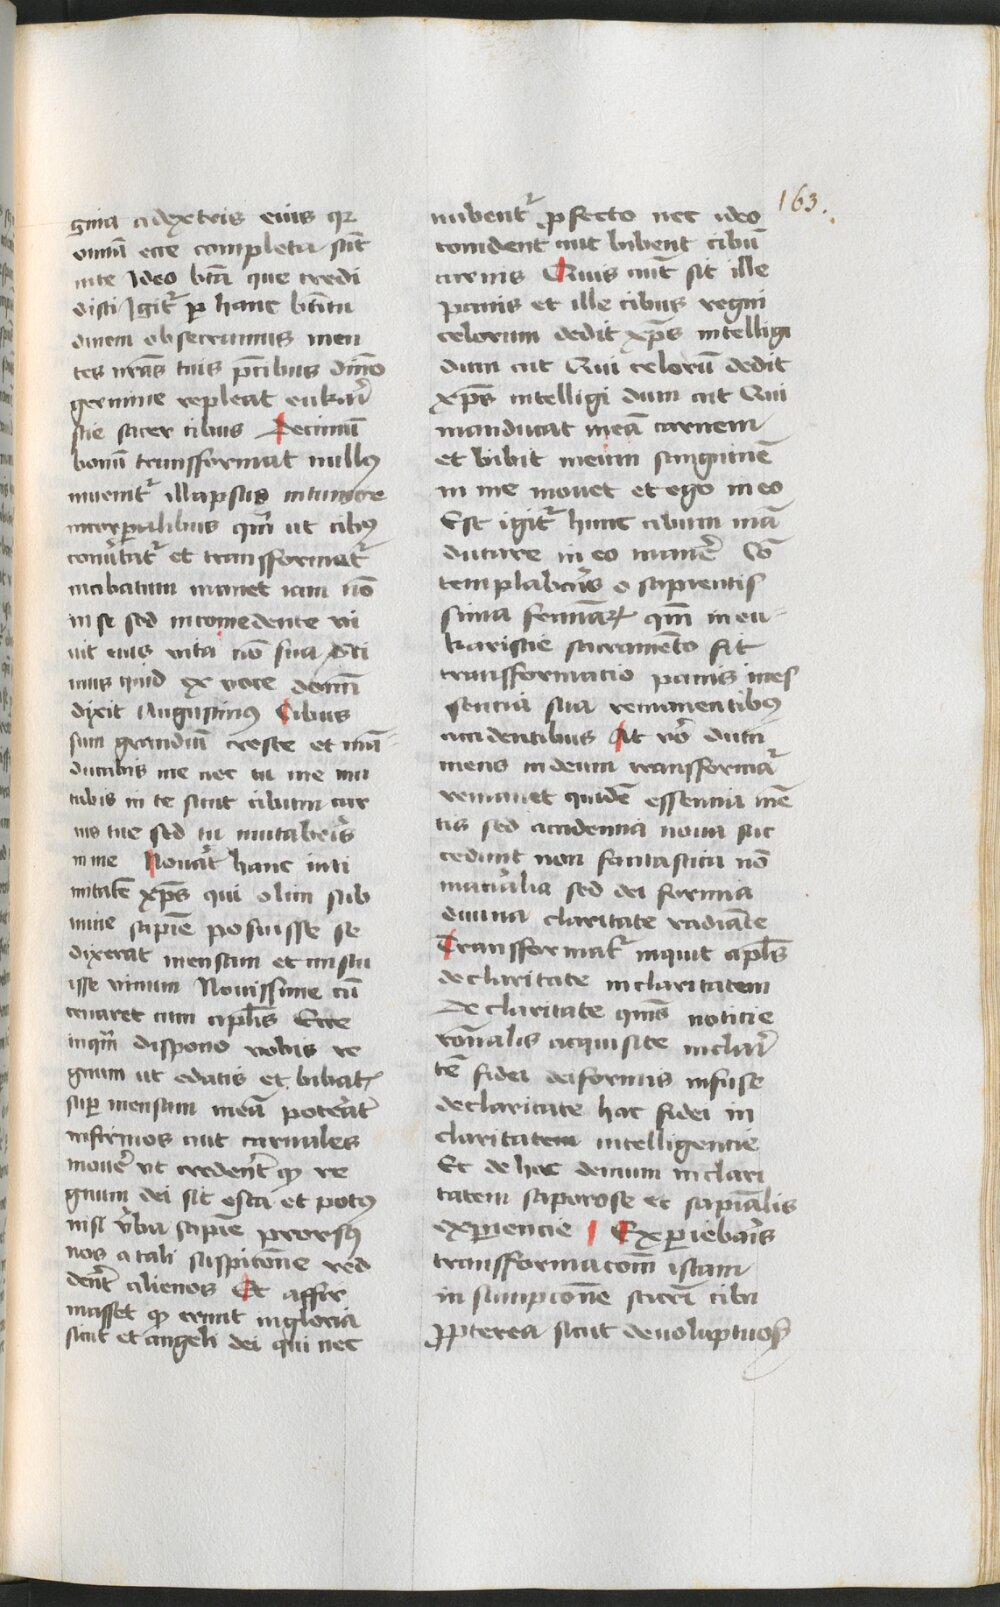 163.
gina a dextris eius qr
omnia ecce completa sūt
in te Ideo btā que credi
disti Igitr p hanc btitu
dinem obsecramus men
tes nrās tuis p̄cibus dīno
germine repleat eukari
stie sacer cibus Decimū
bonū transformat nullus
inuenitr illapsus intimior
incorporalibus qm̄ ut cibus
conūtatr et transformatr
in cibatum manet iam nō
in se sed in comedente vi
uit eius vita nō sua
imus quid ex voce domī
dixit Augustinus Cibus
sum grandiū cresce et mā-
ducabis me nec tu me mu
tabis in te sicut cibum car
nis tue sed tu mutaberis
in me Nouat hanc inti
mitatē xps̄ qui olim sub
nīne sapiē posuisse se
dixerat mensam et miscu
isse vinum Nouissime cū
cenaret cum aplīs Ecce
inqm̄ dispono vobis re
gnum ut edatis et bibatis
sup mensam meā poterāt
infirmos aut carnales
mouē vt crederēt qd re
gnum dei sit esca et potus
nisi v̄ba sapiē prorsus
nos a tali suspitōne red
derēt alienos Et affir
masset qd erunt in gloria
sicut et angeli dei qui nec
nubentr pfecto nec ideo
comedent aut bibent cibū
carnis Quis aūt sit ille
panis et ille cibus regni
celorum dedit xps̄ intelligē
dum cut Qui celorū dedit
xps̄ intelligi dum aut Qui
manducat meā carnem
et bibit meum sanguinē
in me manet et ego in eo
Est igitr hunc cibum mā
ducare in eo manē Cō
templabaris o sapientis
sima feminar qm̄ in eu-
karistie sacramēto fit
transformatio panis in es
sencia sua remanentibus
accidentibus At vō dum
mens in deum transformar
remanet quidē essentia mē
tis sed accidentia noua suc
cedunt non fantastica nō
matualia sed dei formia
diuina claritate radiāte
Transformatr inquit apls̄
de claritate in claritatem
De claritate quis noticie
rōnalis acquisite in clari
tē fidei deiformis infuse
de claritate hac fidei in
claritatem intelligencie
Et de hac demum in clari
tatem saporose et sapiālis
experiencie Experiebaris
transformacōm istam
in sumpcōne sacri cibi
ppterea sicut de voluptuos